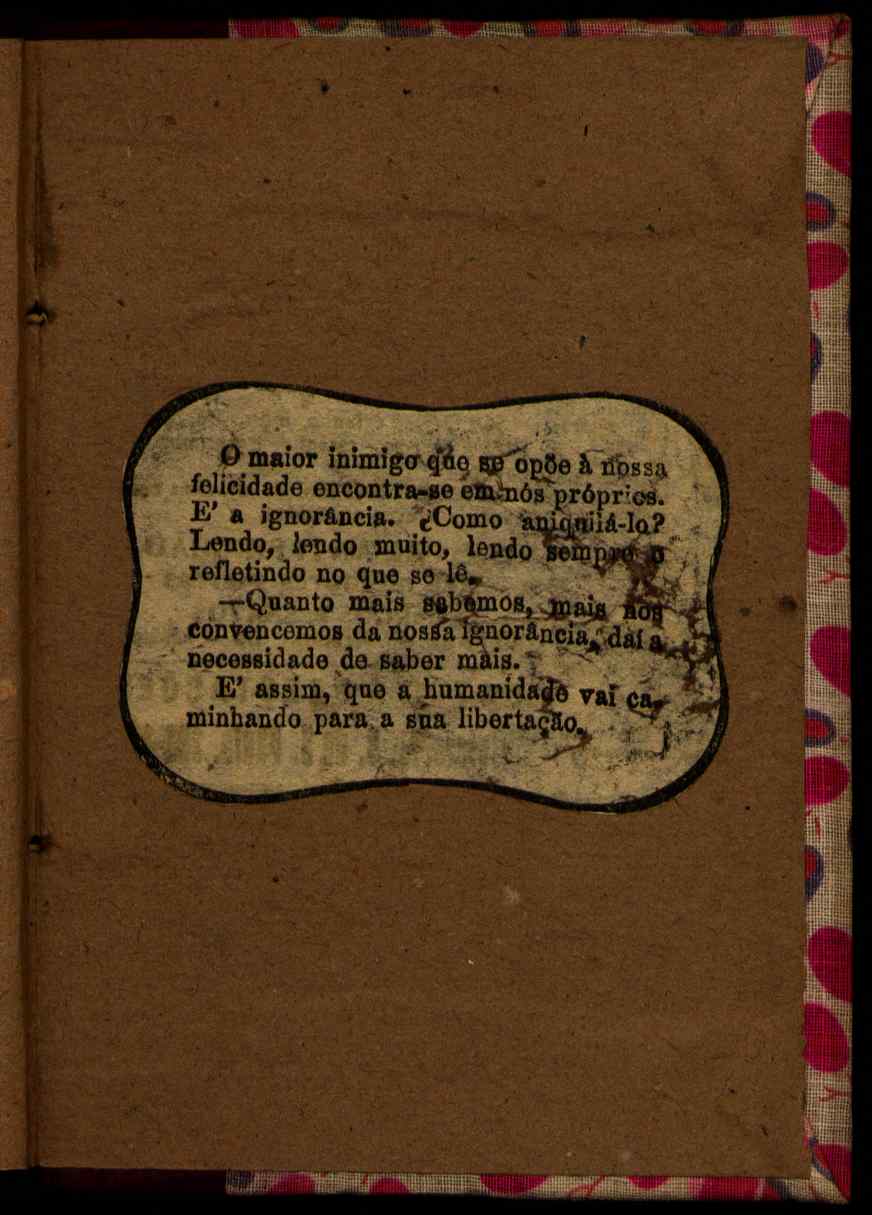 O maior inimigo que se opõe à nossa
felicidade encontra-se em nós próprios.
E' a ignorância. ¿Como aniquilá-la?
Lendo, lendo muito, lendo sempre e
refletindo no que se lê.
—Quanto mais sabemos, mais nos
convencemos da nossa ignorância, daí a
necessidade de saber mais.
E' assim, que a humanidade vai ca-
minhando para a sua libertação.